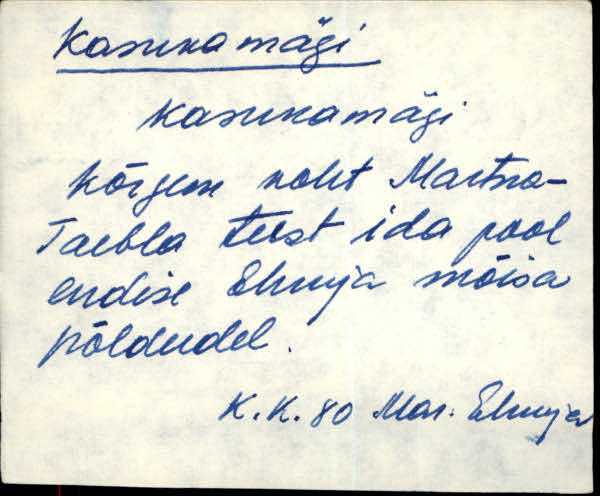 Kasukamägi
Kasukamägi
Kõrgem koht Martna-
Taebla teest ida pool
endise Ehmja mõisa
põldudel.
K.K. 80 Mar. Ehmja